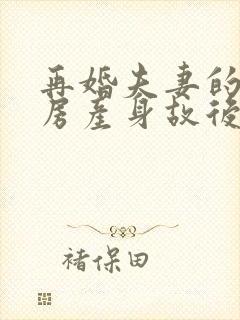 再婚夫妻的
房产身故後
褚保田